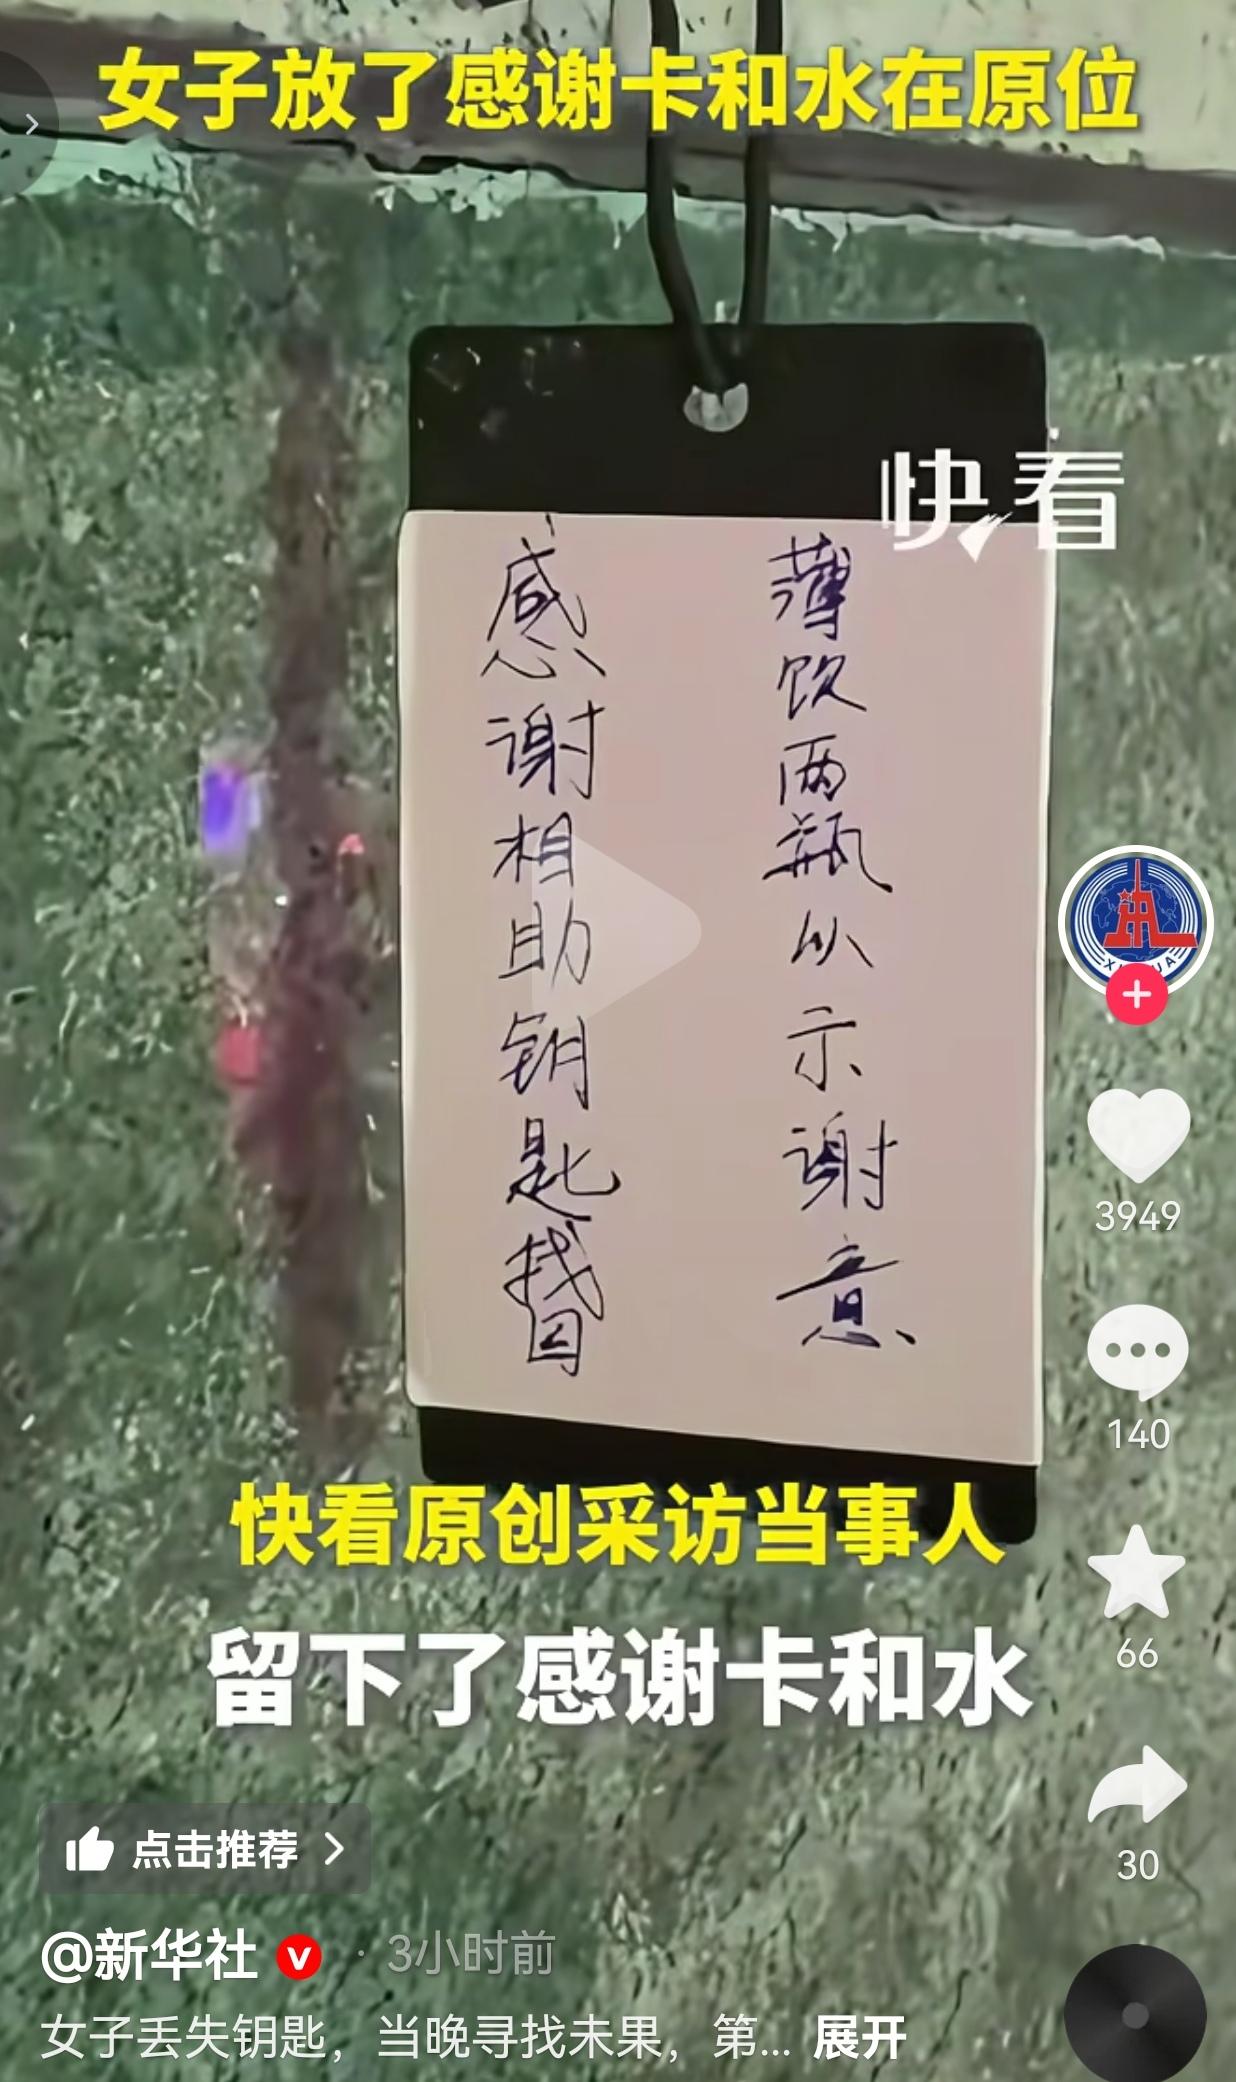 女子放了感谢卡和水在原位
快看
薄饮两瓶以示谢意
感谢相助钥匙找回
3949
140
快看原创采访当事人
留下了感谢卡和水
66
点击推荐
30
@新华社
3小时前
女子丢失钥匙，当晚寻找未果，第... 展开